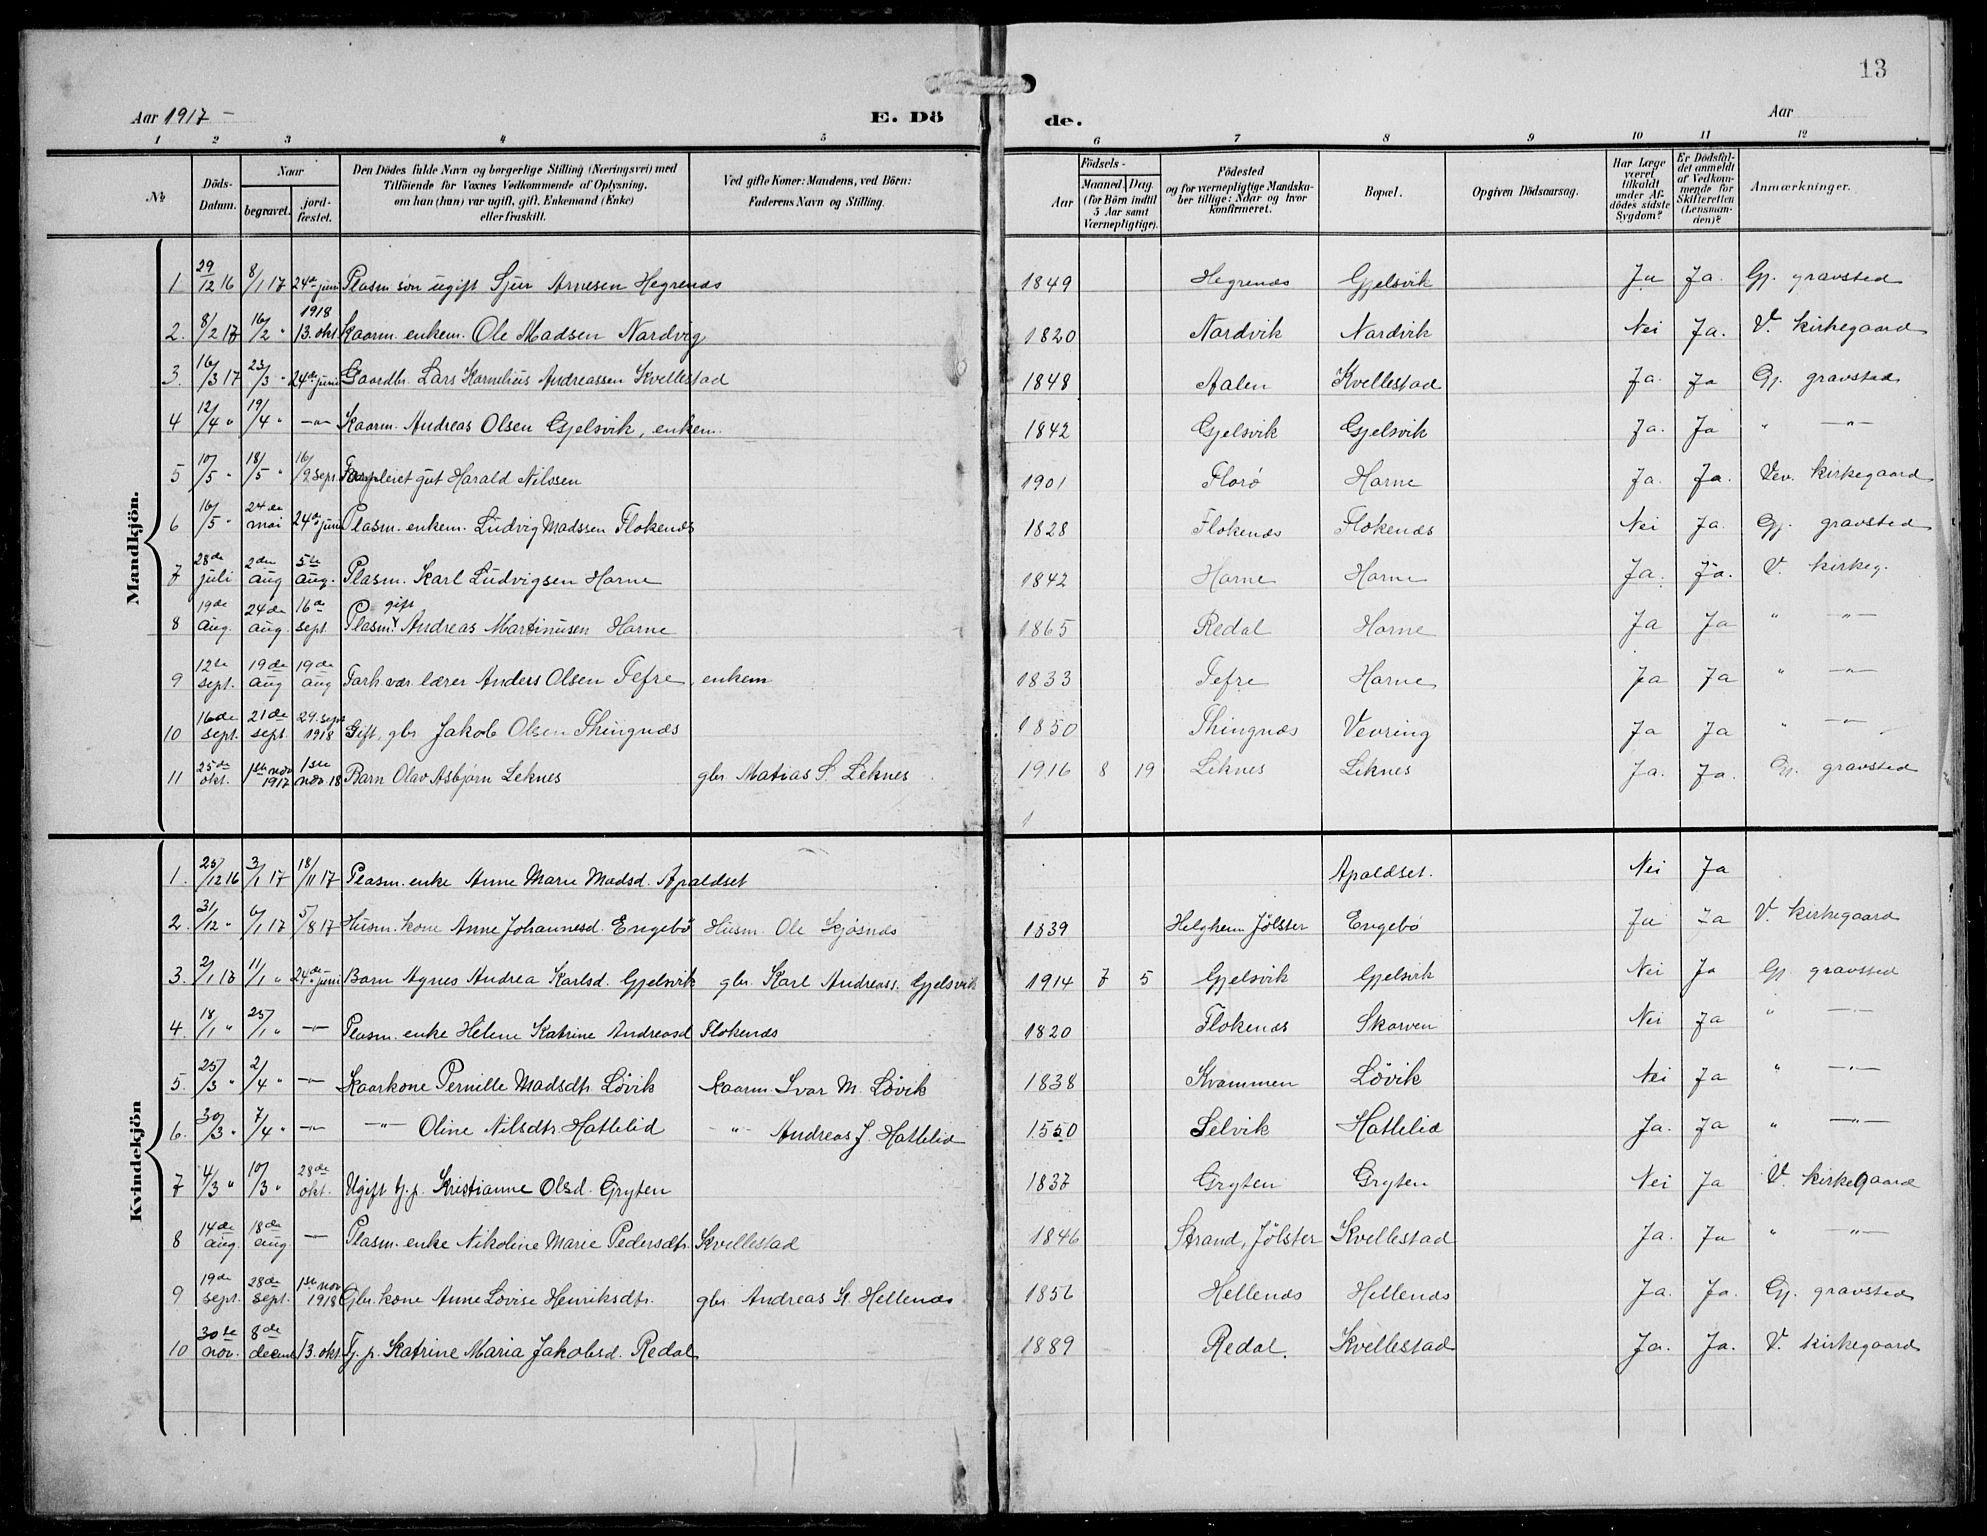 13
Aar 1917 – E. Dö de. Aar
1 2 3 4 5 6 7 8 9 10 11 12
No. Döds-Datum. Naar begravet. jordfæstet. Den Dödes fulde Navn og borgerlige Stilling (Næringsvei) med Tilföiende for Voxnes Vedkommende af Oplysning, om han (hun) var ugift, gift, Enkemand (Enke) eller fraskilt. Ved gifte Koner: Mandens, ved Börn: Faderens Navn og Stilling. Födsels- Aar Maaned. Dag. (for Börn indtil 5 Aar samt Værnepligtige). Födested og for værnepligtige Mandskaber tillige: Naar og hvor konfirmeret. Bopæl. Opgiven Dödsaarsag. Har Læge været tilkaldt under Afdödes sidste Sygdom? Er Dödsfaldet anmeldt af Vedkommende for Skifteretten (Lensmanden)? Anmærkninger.
Mandkjön.
1 29/12 16 8/1 17 24de juni Plasm. søn ugift Sjur Arnesen Hegrenæs 1849 Hegrenæs Gjelsvik Ja Ja. Gj. gravsted
2. 8/2 17 16/2 " 1918 13. okt. Kaarm. enkem. Ole Madsen Nardvig 1820 Nardvik Nardvik Nei Ja. V. kirkegaard
3. 16/3 17 23/3 " 24de juni Gaardbr. Lars Kornelius Andreassen Kvellestad 1848 Aalen Kvellestad Ja. Ja Gj. gravsted
4 12/4 " 19/4 " —"— Kaarm. Andreas Olsen Gjelsvik, enkem. 1842 Gjelsvik Gjelsvik Ja. Ja " —"—
5 10/5 " 18/5 " 16/9 sept. Forpleiet gut Harald Nilssen 1901 Florø Horne Ja. Ja. Vev. kirkegaard
6 16/5 " 24de mai 24de juni Plasm. enkem. Ludvig Madssen Flokenæs 1828 Flokenæs Flokenæs Nei Ja. Gj. gravsted
7 28de juli 2den aug 5te aug. Plasm. Karl Ludvigsen Horne 1842 Horne Horne Ja. Ja. V. kirkeg.
8 19de aug. 24de aug. 16de sept. Plasm. gift Andreas Martinusen Horne 1865 Redal Horne Ja Ja " —"—
9 12te sept. 19de aug 19de aug Forh. vær. lærer Anders Olsen Tefre, enkem 1833 Tefre Horne Ja Ja " —"—
10 16de sept. 21de sept. 29. sept 1918 Gift, gbr Jakob Olsen Thingnæs 1850 Thingnæs Vevring Ja Ja " —"—
11 25de okt. 1ste nov 1917 1ste nov. 18 Barn Olav Asbjørn Leknes gbr Matias S. Leknes 1916 8 19 Leknes Leknes Ja. Ja. Gj. gravsted
1
Kvindekjön
1. 25/12 16 3/1 17 18/11 17 Plasm. enke Anne Marie Madsd. Apaldset Apaldset. Nei Ja
2. 31/12 " 6/1 17 5/8 17 Husm. kone Anne Johannesd. Engebø Husm. Ole Kjøsnæs 1839 Helghem Jølster Engebø Ja Ja V. kirkegaard
3. 2/1 17 11/1 " 24de juni Barn Agnes Andrea Karlsd. Gjelsvik gbr. Karl Andreass. Gjelsvik 1914 7 5 Gjelsvik Gjelsvik Nei Ja Gj. gravsted
4. 18/1 " 25/1 " —"— Plasm. enke Helene Katrine Andreasd Flokenæs 1820 Flokenæs Skorven Nei Ja " —"—
5. 25/3 " 2/4 " —"— Kaarkone Pernille Madsdtr Løvik Kaarm. Ivar M. Løvik 1838 Kvammen Løvik Nei Ja " —"—
6. 30/3 " 7/4 " —"— —"— Oline Nilsdtr Hatlelid —"— Andreas J. Hatlelid 1550 Selvik Hatlelid Ja. Ja " —"—
7 4/3 " 10/3 " 28de okt. Ugift tj.p. Kristianne Olsd. Gryten 1837 Gryten Gryten Nei Ja V. kirkegaard
8 14de aug. 18de aug — Plasm. enke Nikoline Marie Pedersdtr. Kvellestad 1846 Strand, Jølster Kvellestad Ja. Ja " —"—
9 19de sept. 28de sept. 1ste nov 1918 Gbr. kone Anne Lovise Henriksdtr. gbr. Andreas H. Hellenæs 1856 Hellenæs Hellenæs Ja. Ja. Gj. gravsted
10 30te nov. 8de decemb 13. okt. Tj. p. Katrine Maria Jakobsd. Redal 1889 Redal. Kvellestad Ja. Ja. V. kirkegaard